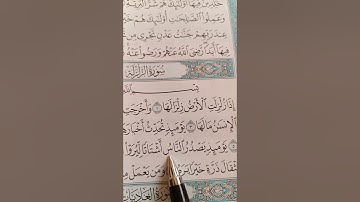 خَٰلِدِينَ فِيهَآ أُوْلَٰٓئِكَ هُمْ شَرُّ ٱلْبَرِيَّةِ
وَعَمِلُوا۟ ٱلصَّٰلِحَٰتِ أُوْلَٰٓئِكَ هُمْ خَيْرُ
عِندَ رَبِّهِمْ جَنَّٰتُ عَدْنٍ تَجْرِى مِن
فِيهَآ أَبَدًا رَّضِىَ ٱللَّهُ عَنْهُمْ وَرَضُوا۟ عَنْهُ
سُورَةُ الزَّلْزَلَةِ
بِسْمِ ٱللَّهِ
إِذَا زُلْزِلَتِ ٱلْأَرْضُ زِلْزَالَهَا ۝ وَأَخْرَجَتِ
ٱلْإِنسَٰنُ مَا لَهَا ۝ يَوْمَئِذٍ تُحَدِّثُ أَخْبَارَهَا
يَوْمَئِذٍ يَصْدُرُ ٱلنَّاسُ أَشْتَاتًا لِّيُرَوْا۟
مِثْقَالَ ذَرَّةٍ خَيْرًا يَرَهُۥ ۝ وَمَن يَعْمَلْ مِ
سُورَةُ العَادِيَاتِ